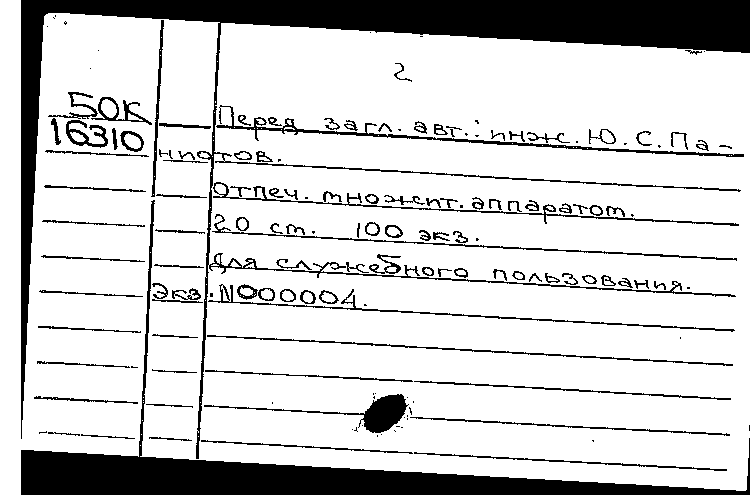 2
50К
16310
Перед загл. авт.: инж. Ю. С. Па-
ниотов.
Отпеч. множит. аппаратом.
20 см. 100 экз.
Для служебного пользования.
Экз. №00004.